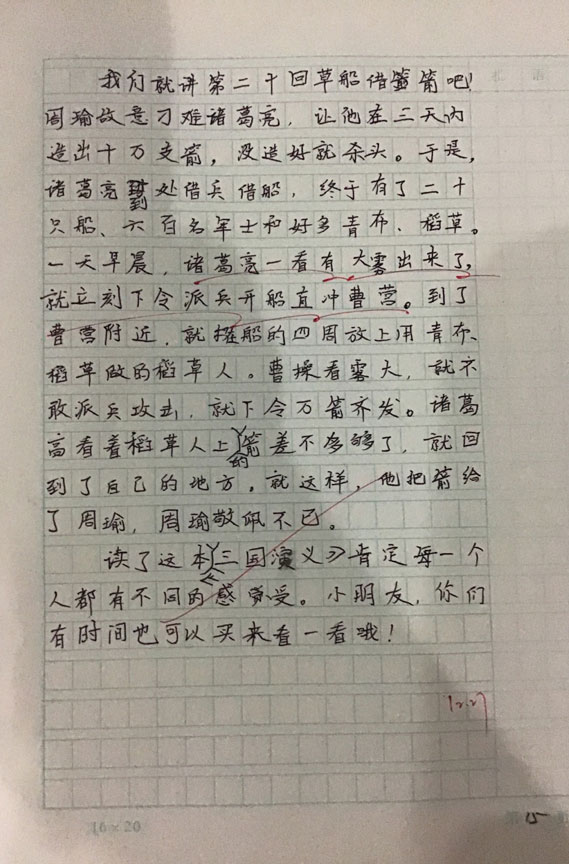 我们就讲第二十回草船借箭吧!
周瑜故意刁难诸葛亮，让他在三天内
造出十万支箭，没造好就杀头。于是，
诸葛亮到处借兵借船，终于有了二十
只船、六百名军士和好多青布、稻草。
一天早晨，诸葛亮一看有大雾出来了，
就立刻下令派兵开船直冲曹营。到了
曹营附近，就在船的四周放上用青布、
稻草做的稻草人。曹操看雾大，就不
敢派兵攻击，就下令万箭齐发。诸葛
亮看着稻草人上的箭差不多够了，就回
到了自己的地方。就这样，他把箭给
了周瑜，周瑜敬佩不已。
读了这本《三国演义》肯定每一个
人都有不同的感受。小朋友，你们
有时间也可以买来看一看哦!
12.27
16×20
第 15